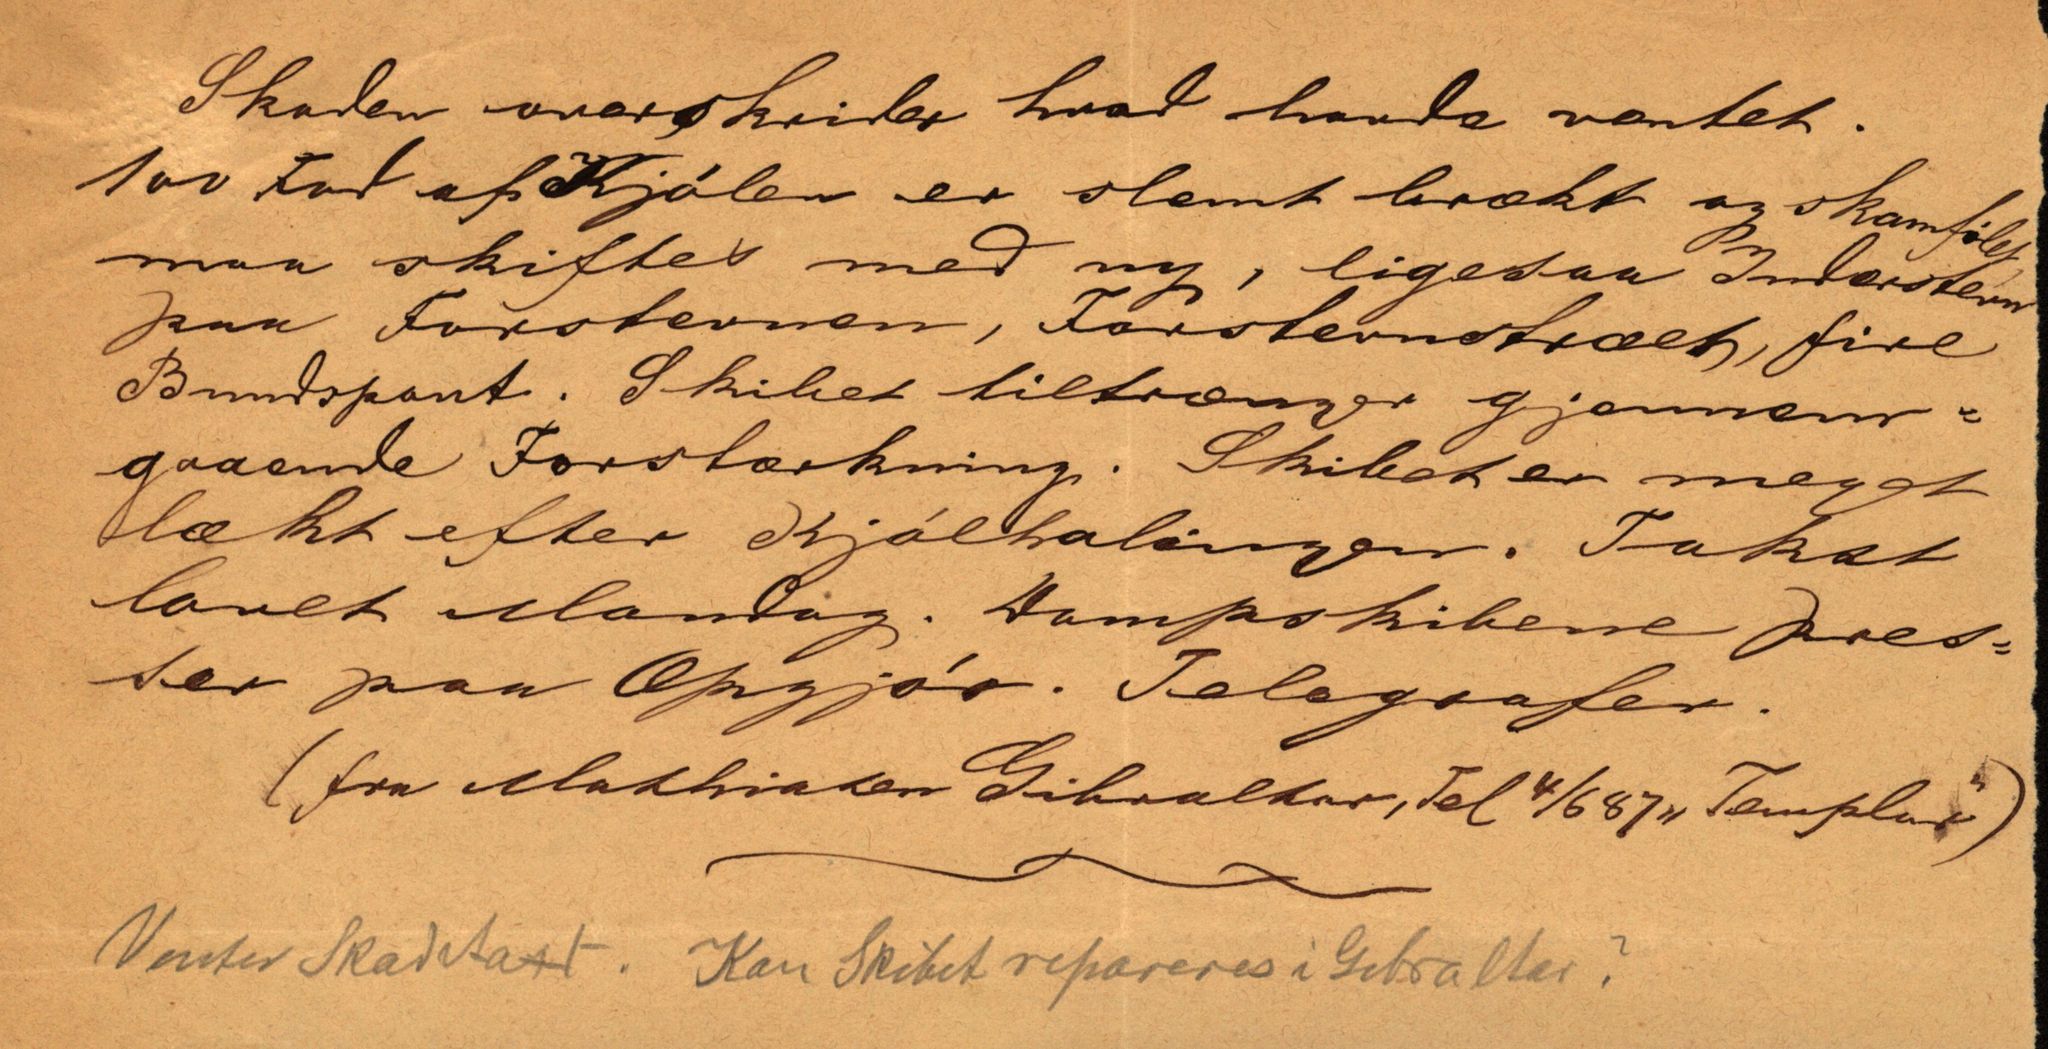 Skaden overskrider hvad havde ventet.
100 Fod af Kjölen er slemt brækt og skamfilet,
maa skiftes med ny, ligesaa Inderstevn
paa Forstevnen, Forstevnstræet, fire
Bundspant. Skibet tiltrænger gjennem-
gaaende Forstærkning. Skibet er meget
lækt efter Kjölhalingen. Takst
lovet Mandag. Dampskibene pres-
ser paa Opgjör. Telegrafer.
(fra Mathiasen Gibraltar, Tel 4/6 87 „Templar")
Venter Skadetaxt. Kan Skibet repareres i Gibraltar?